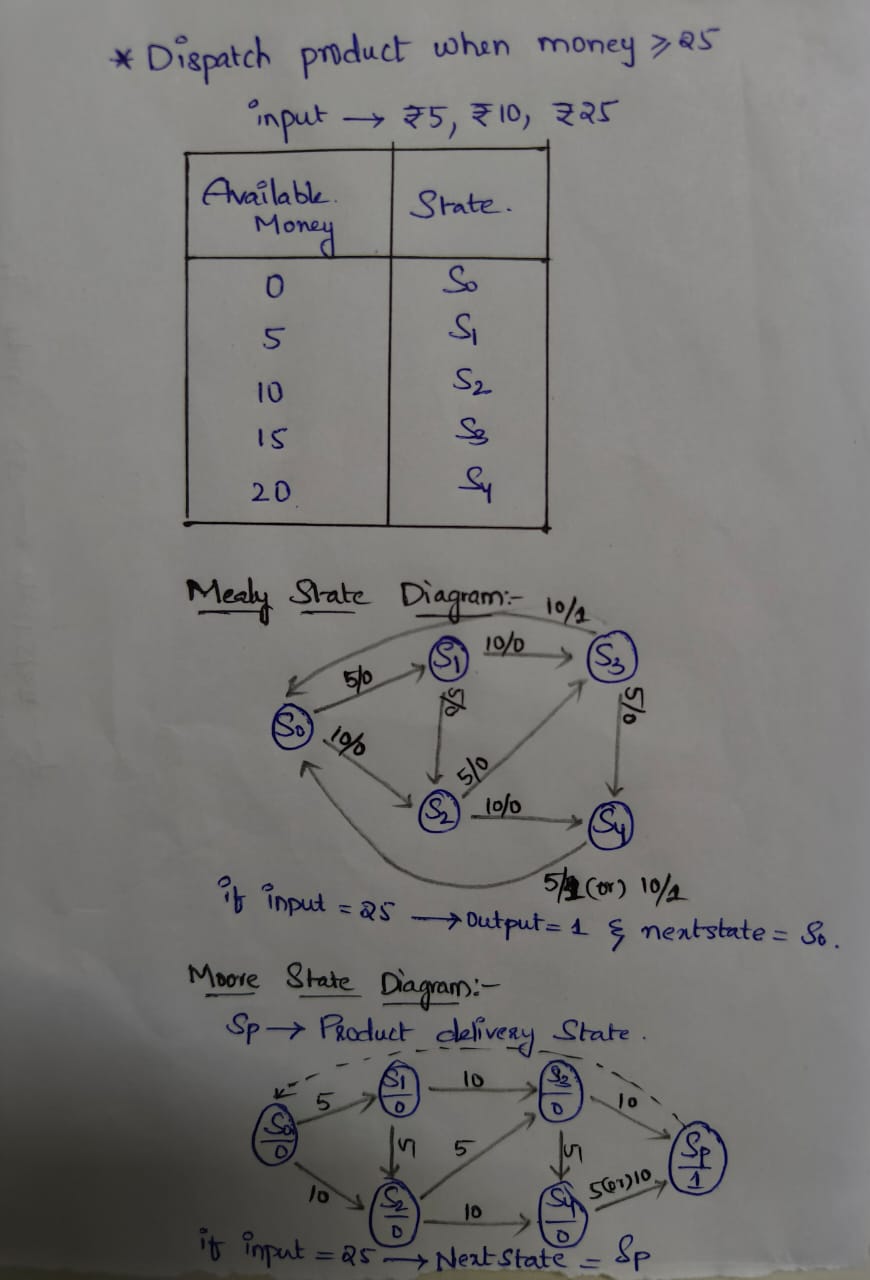 * Dispatch product when money ≥ 25
input → ₹5, ₹10, ₹25
Available Money State.
0 S0
5 S1
10 S2
15 S3
20 S4
Mealy State Diagram:-
10/1
S1 10/0 S3
5/0
5/0 5/0
S0 10/0
5/0
S2 10/0 S4
5/1 (or) 10/1
if input = 25 → Output = 1 & nextstate = S0.
Moore State Diagram:-
Sp → Product delivery State.
S1/0 10 S3/0
5 10
S0/0 5 5 5 Sp/1
10 5(or)10
S2/0 10 S4/0
if input = 25 → Next State = Sp